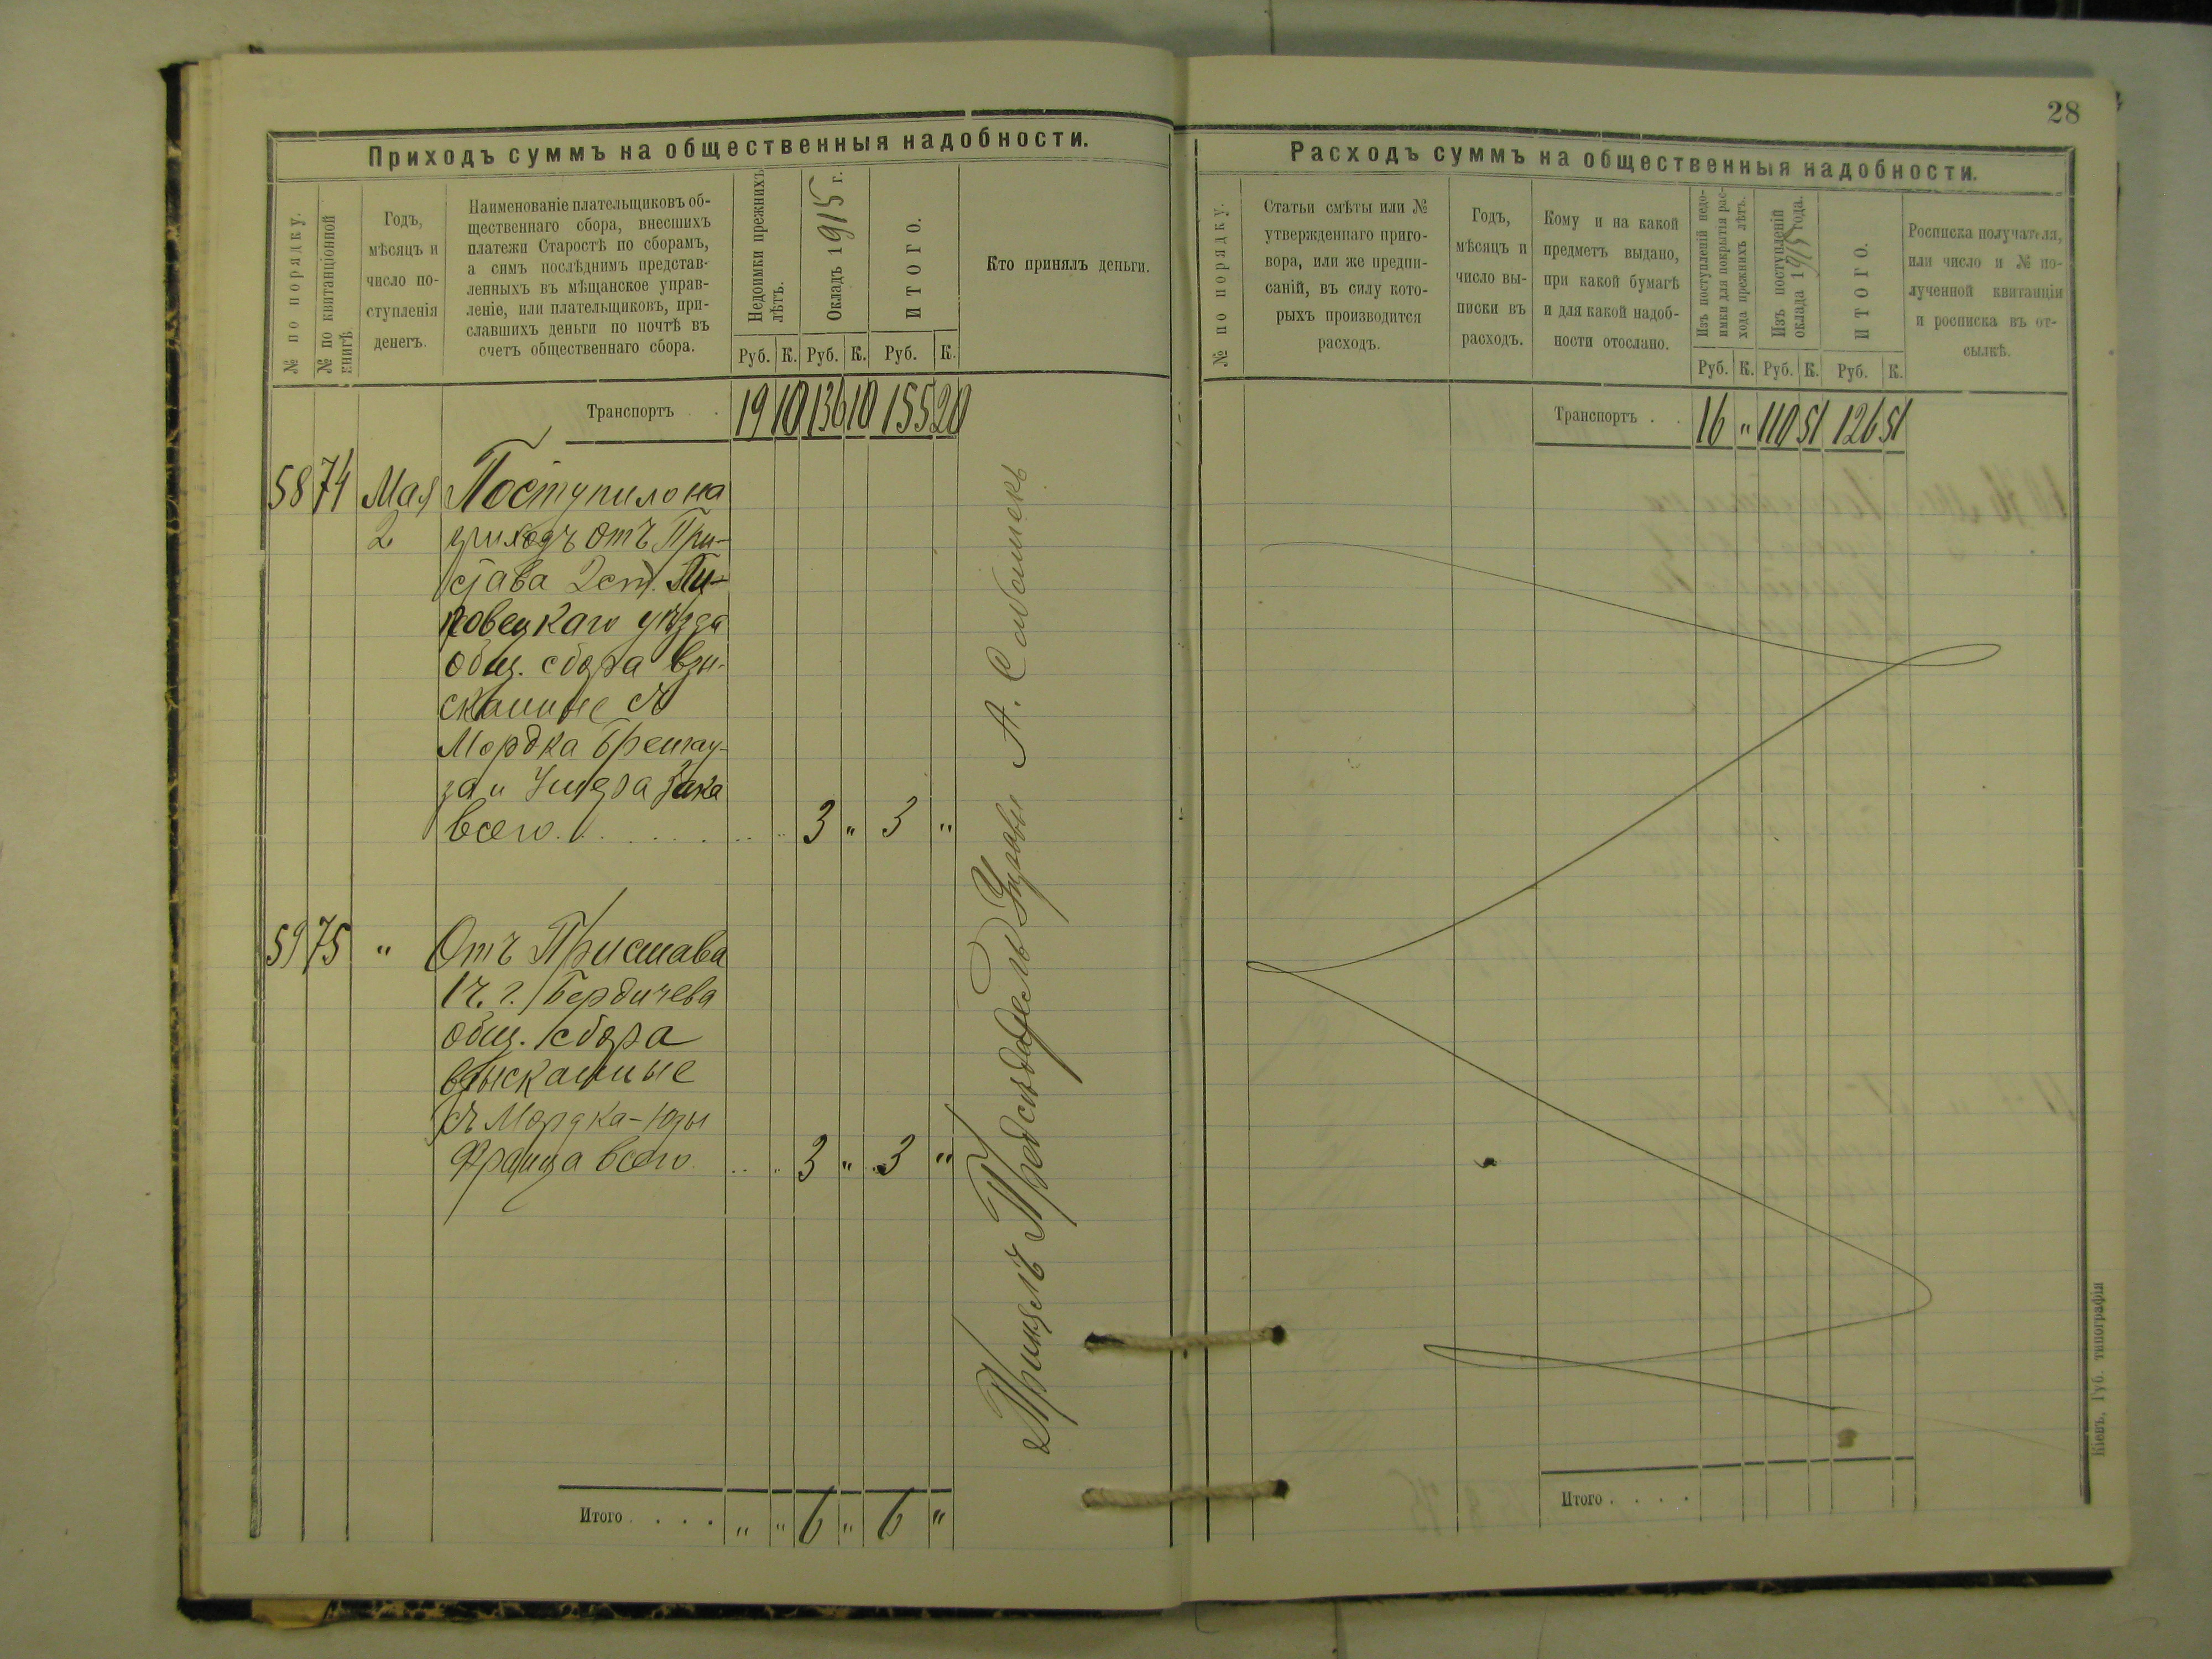 28
Приходъ суммъ на общественныя надобности.
№ по порядку.
№ по квитанціонной
книгѣ.
Годъ,
мѣсяцъ и
число по-
ступленія
денегъ.
Наименованіе плательщиковъ об-
щественнаго сбора, внесшихъ
платежи Старостѣ по сборамъ,
а симъ послѣднимъ представ-
ленныхъ въ мѣщанское управ-
леніе, или плательщиковъ, при-
славшихъ деньги по почтѣ въ
счетъ общественнаго сбора.
Недоимки прежнихъ
лѣтъ.
Окладъ 1915 г.
ИТОГО.
Кто принялъ деньги.
Руб. К. Руб. К. Руб. К.
Транспортъ . 19 10 136 10 155 20
58 74 Мая Поступило на
2 приходъ отъ При-
става 2 ст. Ли-
повецкаго уѣзда
общ. сбора взы-
сканные съ
Мордка
за и Зака
всего . . . . . . . 3 " 3 "
59 75 " Отъ Пристава
1 ч. г. Бердичева
общ. сбора
взысканные
съ Мордка-Юды
Франца всего . . . . 3 " 3 "
Принялъ Предсѣдатель Управы А.
Итого . . . . " " 6 " 6 "
Расходъ суммъ на общественныя надобности.
№ по порядку.
Статьи смѣты или №
утвержденнаго приго-
вора, или же предпи-
саній, въ силу кото-
рыхъ производится
расходъ.
Годъ,
мѣсяцъ и
число вы-
писки въ
расходъ.
Кому и на какой
предметъ выдано,
при какой бумагѣ
и для какой надоб-
ности отослано.
Изъ поступленій недо-
имки для покрытія рас-
хода прежнихъ лѣтъ.
Изъ поступленій
оклада 1915 года.
ИТОГО.
Росписка получателя,
или число и № по-
лученной квитанціи
и росписка въ от-
сылкѣ.
Руб. К. Руб. К. Руб. К.
Транспортъ . . 16 " 110 51 126 51
Итого . . . .
Кіевъ, Губ. типографія